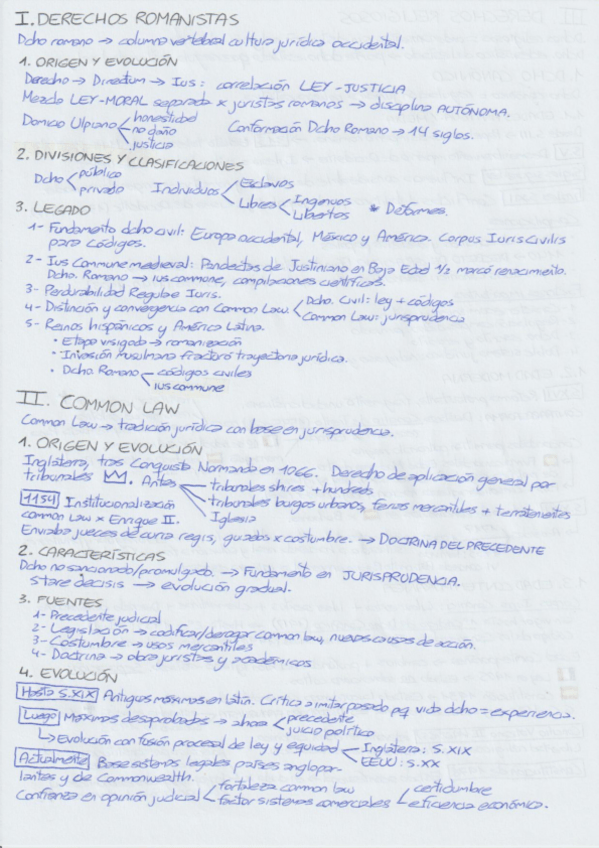 I. DERECHOS ROMANISTAS
Dcho romano → columna vertebral cultura jurídica occidental.
1. ORIGEN Y EVOLUCIÓN
Derecho → Directum → Ius: correlación LEY-JUSTICIA
Mezcla LEY-MORAL separada x juristas romanos → disciplina AUTÓNOMA.
Domicio Ulpiano honestidad
no daño
justicia
Conformación Dcho Romano → 14 siglos.
2. DIVISIONES Y CLASIFICACIONES
Dcho público
privado
Individuos Esclavos
Libres Ingenuos
Libertos
3. LEGADO
1- Fundamento dcho civil: Europa occidental, México y América. Corpus Iuris Civilis
para códigos.
2- Ius Commune medieval: Pandectas de Justiniano en Baja Edad ½ marcó renacimiento.
Dcho. Romano → ius commune, compilaciones científicas.
3- Perdurabilidad Regulae Iuris.
4- Distinción y convergencia con Common Law. Dcho. Civil: ley + códigos
Common Law: jurisprudencia
5- Reinos hispánicos y América Latina.
• Etapa visigoda → romanización
• Invasión musulmana fracturó trayectoria jurídica.
• Dcho. Romano códigos civiles
ius commune
II. COMMON LAW
Common Law → tradición jurídica con base en jurisprudencia.
1. ORIGEN Y EVOLUCIÓN
Inglaterra, tras Conquista Normanda en 1066. Derecho de aplicación general por
tribunales. Antes tribunales shires + hundreds
tribunales burgos urbanos, ferias mercantiles + terratenientes
Iglesia
1154 Institucionalización
common law x Enrique II.
Enviaba jueces de curia regis, guiados x costumbre. → DOCTRINA DEL PRECEDENTE
2. CARACTERÍSTICAS
Dcho no sancionado/promulgado. → Fundamento en JURISPRUDENCIA.
stare decisis → evolución gradual.
3. FUENTES
1- Precedente judicial
2- Legislación → codificar/derogar common law, nuevas causas de acción.
3- Costumbre → usos mercantiles
4- Doctrina → obra juristas y académicos
4. EVOLUCIÓN
Hasta S.XIX Antiguas máximas en latín. Crítica a imitar pasado pq vida dcho = experiencia.
Luego Máximas desaprobadas → ahora precedente
juicio político
↳ Evolución con fusión procesal de ley y equidad Inglaterra: S.XIX
EEUU: S.XX
Actualmente Base sistemas legales países anglopar-
lantes y de Commonwealth.
Confianza en opinión judicial fortaleza common law
factor sistemas comerciales certidumbre
eficiencia económica.